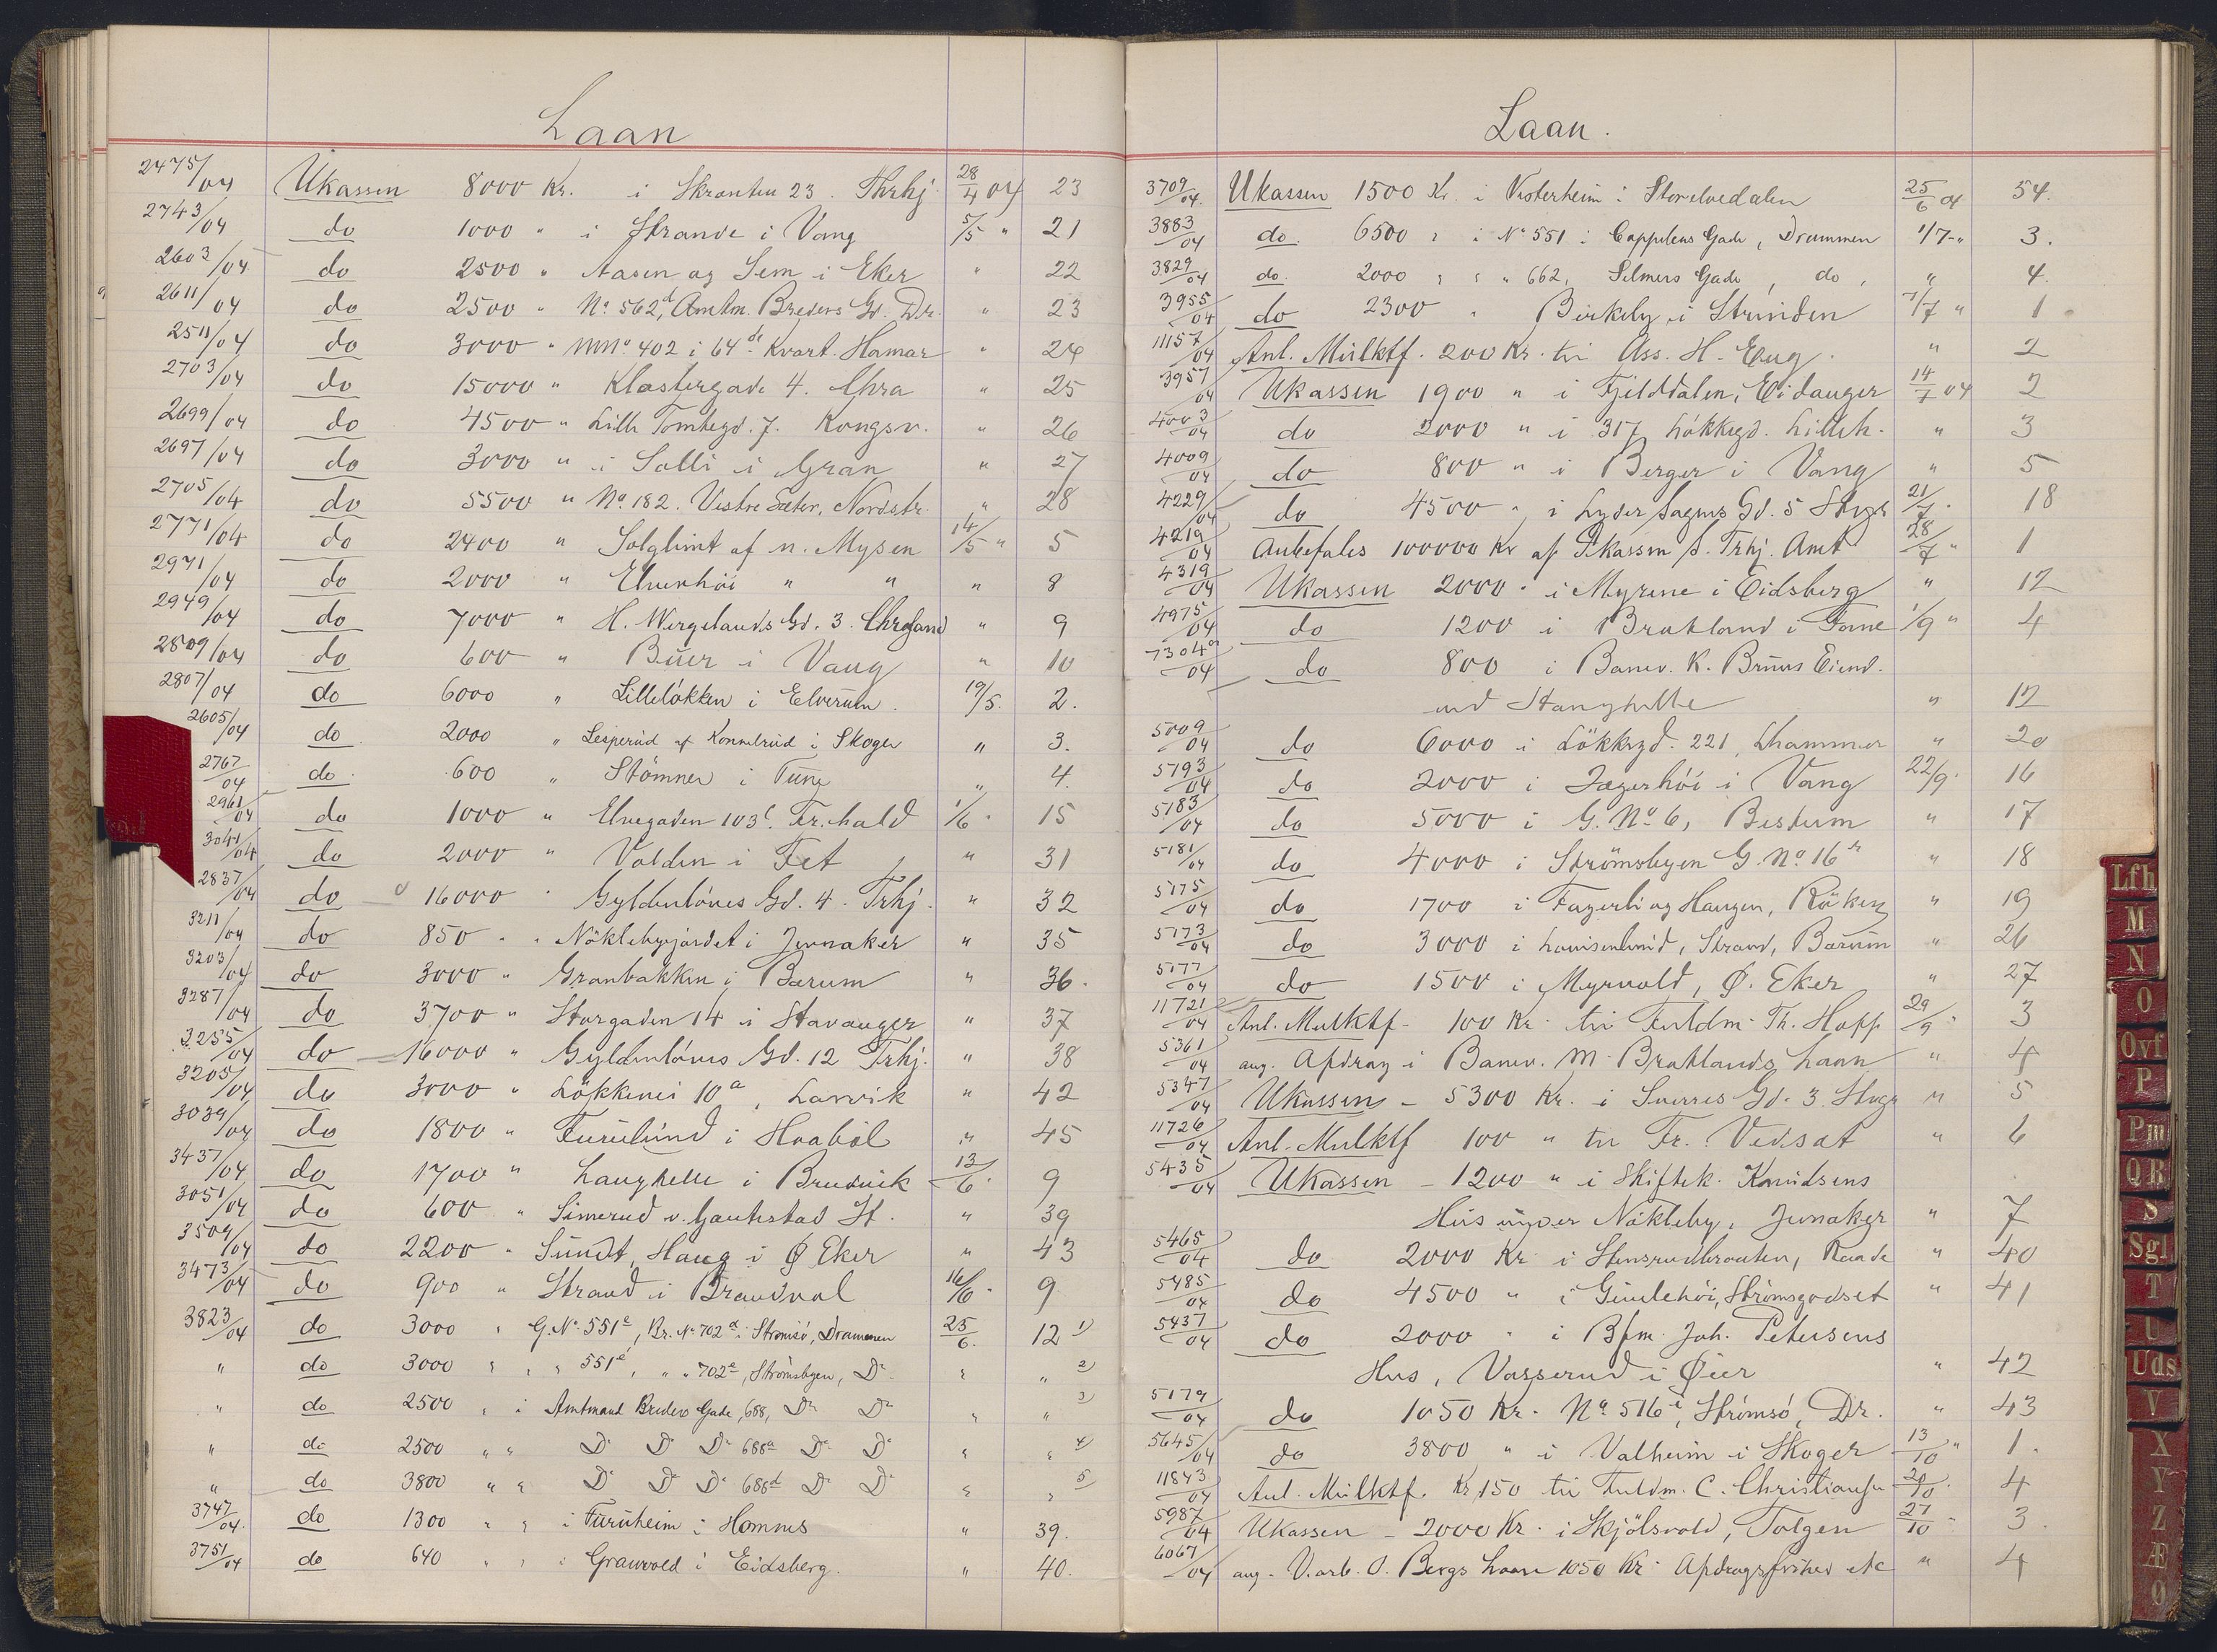 Laan
2475/04 Ukassen 8000 Kr. i Skranten 23. Thrhj. 28/4 04 23
2743/04 do 1000 " i Strande i Vang 5/5 " 21
2603/04 do 2500 " Aasen og Sem i Eker " 22
2611/04 do 2500 " No 562d, Amtm. Breders Gd. Dr. " 23
2511/04 do 3000 " MNo 402 i 64de Kvart. Hamar " 24
2703/04 do 15000 " Klostergade 4. Chra " 25
2699/04 do 4500 " Lille Tomtegd. 7. Kongsv. " 26
2697/04 do 3000 " i Solli i Gran " 27
2705/04 do 5500 " No 182. Vestre Sæter, Nordstr. " 28
2771/04 do 2400 " Solglimt af n. Mysen 14/5 " 5
2971/04 do 2000 " Elverhöi " " " 8
2949/04 do 7000 " H. Wergelands Gd. 3. Chrsand " 9
2809/04 do 600 " Buer i Vang " 10
2807/04 do 6000 " Lillelökken i Elverum. 19/5. 2.
2605/04 do 2000 " Lesperud af Konnerud i Skoger " 3.
2767/04 do 600 " Stömner i Tune " 4.
2961/04 do 1000 " Elvegaden 103c. Fr.hald 1/6 " 15
3041/04 do 2000 " Volden i Fet " 31
2837/04 do 16000 " Gyldenlöves Gd. 4. Trhj. " 32
3211/04 do 850 " " Nöklebyjordet i Jevnaker " 35
3203/04 do 3000 " Granbakken i Bærum " 36.
3287/04 do 3700 " Storgaden 14 i Stavanger " 37
3255/04 do 16000 " Gyldenlöves Gd. 12 Trhj. " 38
3205/04 do 3000 " Lökkenei 10a, Larvik " 42
3039/04 do 1800 " Furulund i Hobøl " 45
3437/04 do 1700 " Langhelle i Bruvik 13/6 " 9
3051/04 do 600 " Simerud v. Gaustad St. " 39
3509/04 do 2200 " Sundt, Haug i Ø Eker " 43
3473/04 do 900 " Strand i Brandval 16/6 " 9
3823/04 do 3000 " G.No 551e, Br. No 702d i Strømsö, Drammen 25/6. 12 1)
" do 3000 " " " 551e, " " 702e, Strömsbyen, Do " " 2)
" do 2500 " i Amtmand Breders Gade, 688, Do Do " " 3)
" do 2500 " " Do Do Do 688a Do Do " " 4)
" do 3800 " " Do Do Do 688d Do Do " " 5)
3747/04. do 1300 " " i Furuheim i Homnes " 39.
3751/04 do 640 " " i Granvold i Eidsberg. " 40.
Laan.
3709/04. Ukassen 1500 Kr. i Vesterheim i Storelvedalen 25/6 04 54.
3883/04 do. 6500 " i No 551 i Cappelens Gade, Drammen 1/7 " 3.
3829/04 do. 2000 " " " 662, Selmers Gade, do, " 4.
3955/04 do 2300 " Birkely i Strinden 7/7 " 1
11157/04 Anl. Mulktf. 200 Kr. til Ass. H. Eug. " 2
3957/04 Ukassen 1900 " i Fjelddalen, Eidanger 14/7 04 2
4003/04 do 2000 " i 317 Lökkegd. Lilleh. " 3
4009/04 do 800 " i Berger i Vang " 5
4229/04 do 4500 " i Lyder Sagens Gd. 5 Stvgr 21/7 " 18
4219/04 Anbefales 100000 Kr af Ukassen s. Trhj. Amt 28/7 " 1
4319/04 Ukassen 2000 " i Myrene i Eidsberg " 12
4975/04 do 1200 i Brakland i Fane 1/9 " 4
7304a/04 do 800 i Banev. K. Bruus Eiend.
ved Stanghelle " 12
5009/04 do 6000 i Lökkegd. 221, Lhammer " 20
5193/04 do 2000 i Jægerhöi i Vang 22/9 " 16
5183/04 do 5000 i G. No 6, Bestum " 17
5181/04 do 4000 i Strömsbyen G. No 16 " 18
5175/04 do 1700 i Fagerli og Haugen, Röken " 19
5173/04 do 3000 i Louisenlund, Strand, Bærum " 26
5177/04 do 1500 i Myrvold, Ø. Eker " 27
11721/04 Anl. Mulktf. 100 Kr. til Fuldm. Th. Hoff 29/9 " 3
5361/04 ang. Afdrag i Banev. M. Braklands Laan " 4
5347/04 Ukassen - 5300 Kr. i Sverres Gd. 3. Stvgr " 5
11726/04 Anl. Mulktf 100 " til Fr. Vedsat " 6
5435/04 Ukassen - 1200 " i Skiftek. Knudsens
Hus under Nökleby, Jevnaker " 7
5465/04 do 2000 Kr i Stensrudbraaten, Raade " 40
5485/04 do 4500 " i Gimlehöi, Strömsgodset " 41
5437/04 do 2000 " i Bfm. Joh. Petersens
Hus, Vasserud i Øier " 42
5179/04 do 1050 Kr. No 516i, Strömsö, Dr. " 43
5645/04 do 3800 " i Valheim i Skoger 13/10 " 1.
11843/04 Anl. Mulktf. Kr. 150 til Fuldm. C. Christiansen 20/10 " 4
5987/04 Ukassen - 2000 Kr. i Skjölsvold, Tolgen 27/10 " 3.
6067/04 ang. V.arb. O. Bergs Laan 1050 Kr. Afdragsfrihed etc " 4
Lfh
M
N
O
Ovf
P
Pm
QR
S
Sgl
T
U
Uds
V
X
Y
Z
Æ
Ø